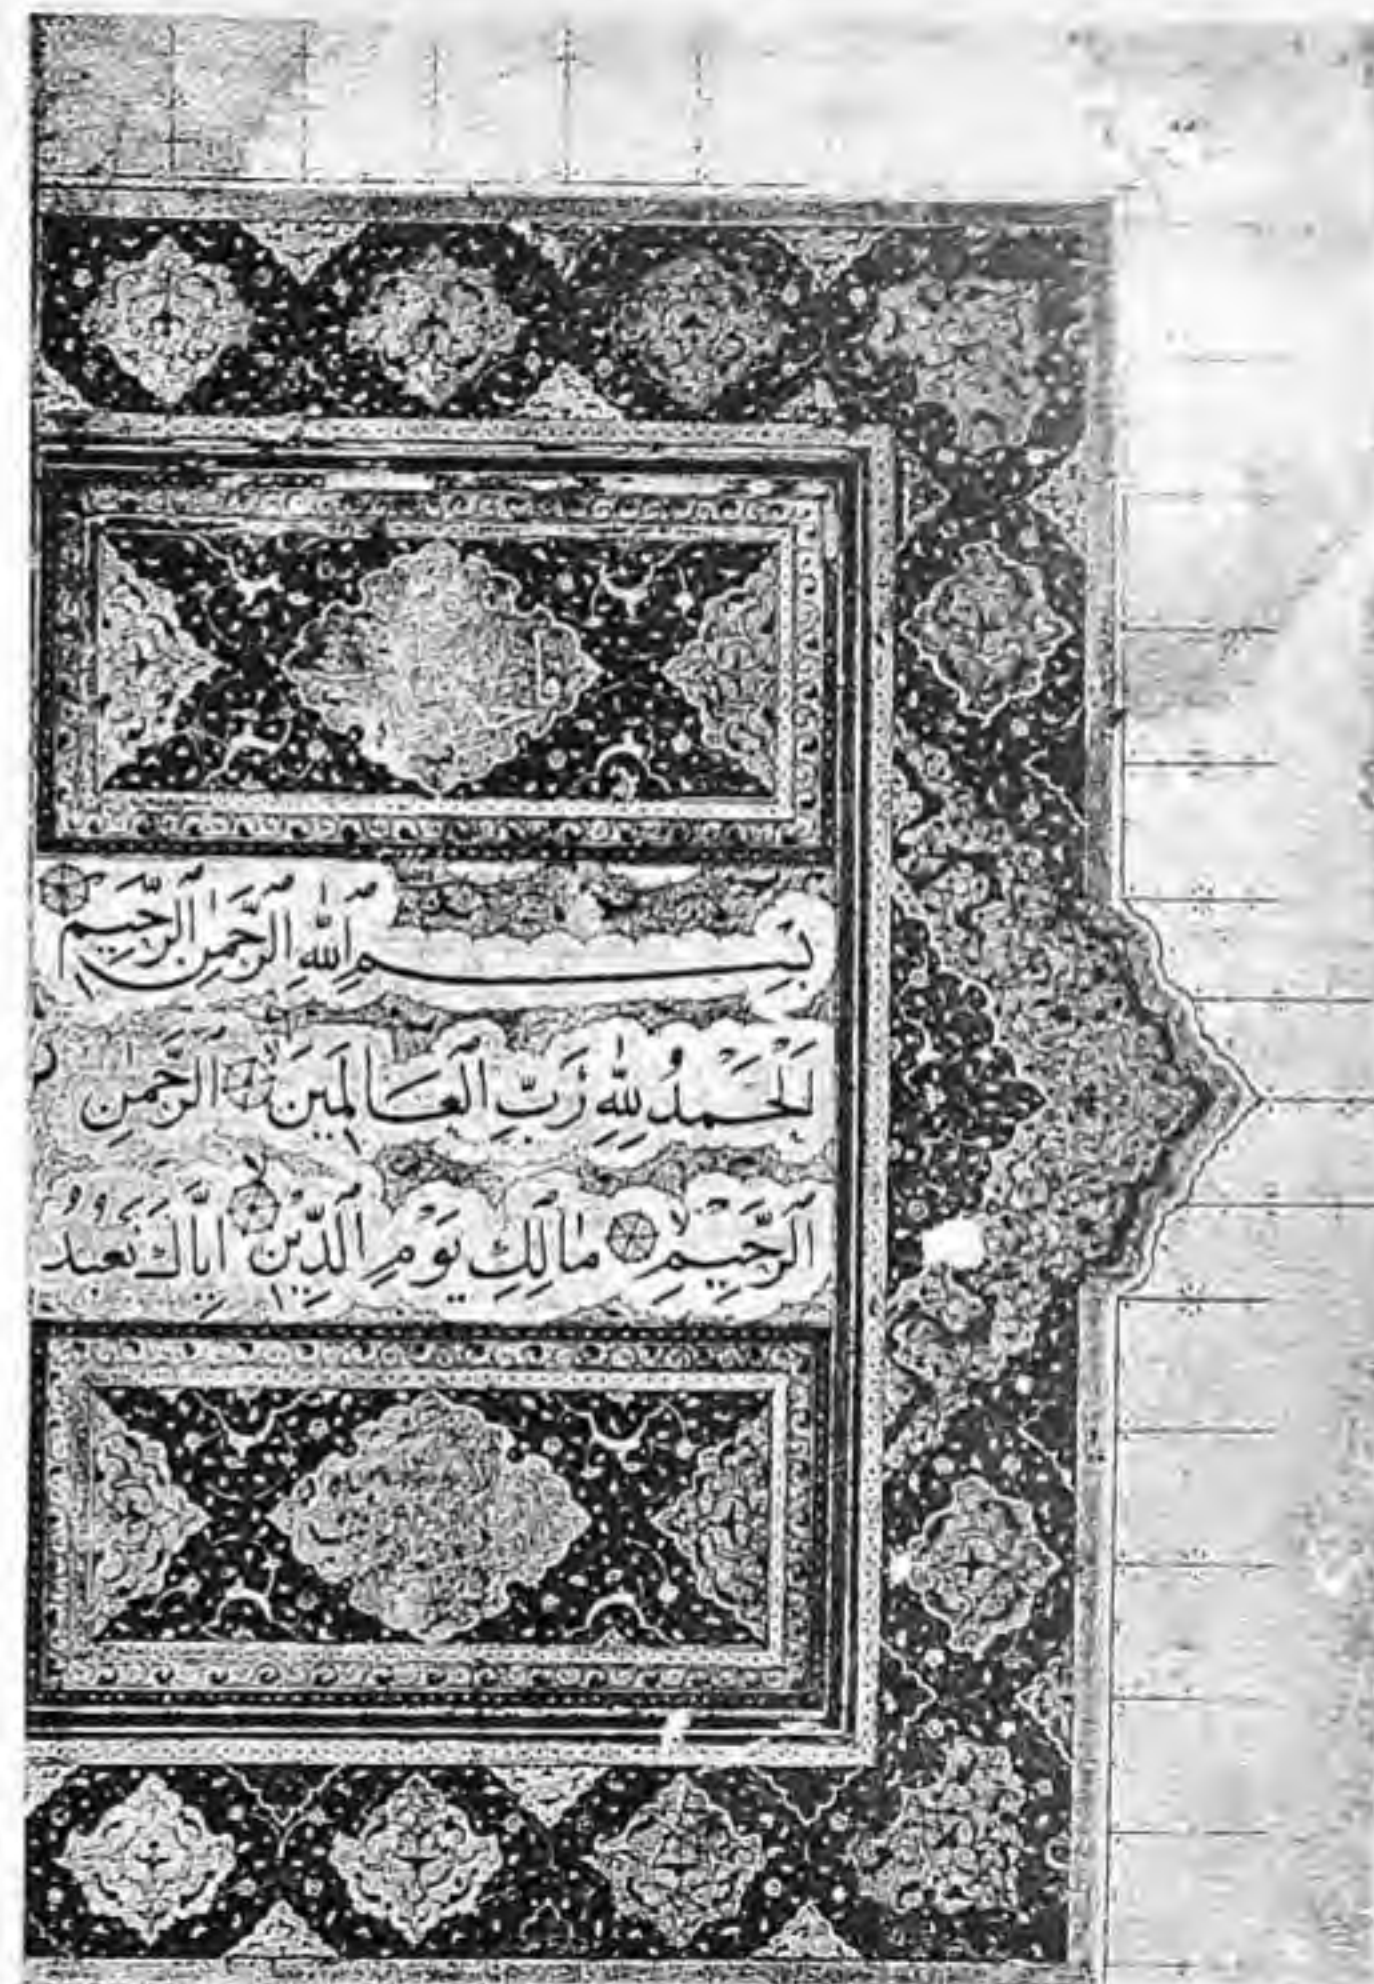 بِسْمِ اللهِ الرَّحْمٰنِ الرَّحِيمِ
اَلْحَمْدُ لِلّٰهِ رَبِّ الْعَالَمِينَ الرَّحْمٰنِ
الرَّحِيمِ مَالِكِ يَوْمِ الدِّينِ اِيَّاكَ نَعْبُدُ